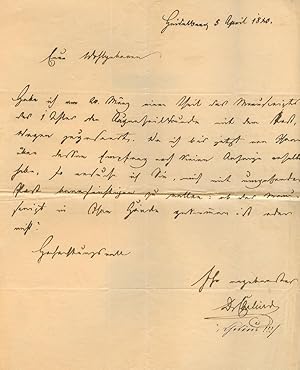 Heidelberg 5 April 1840.
Euer Wohlgeboren
Habe ich am 20. März einen Theil des Manuscripts
des 1 der Augenheilkunde mit dem Post
wagen zugesandt. Da ich bis jetzt von Ihnen
über dessen Empfang noch keine Anzeige erhalten
habe, so ersuche ich Sie, mich mit umgehender
Post benachrichtigen zu wollen, ob das Manu
script in Ihre Hände gekommen ist oder
nicht.
Hochachtungsvoll
Ihr ergebenster
Dr Chelius